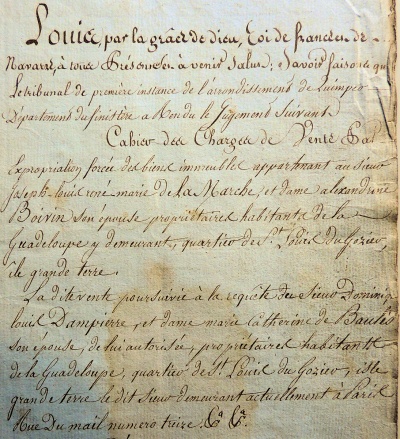 Louis, par la grâce de dieu, Roi de france et de
Navarre, à tous Présens et à venir Salut; Savoir faisons que
Le tribunal de première instance de l'arrondissement de Quimper
Département du finistère a Rendu le Jugement Suivant
Cahier des Charges de Vente Par
Expropriation forcée des biens immeubles appartenant au Sieur
Joseph louis rené marie de La Marche, et dame alexandrine
Boivin Son épouse propriétaires habitants de la
Guadeloupe y demeurant, quartier de St. Louis du Gozier,
ile grande terre.
La dite vente poursuivie à la requête du Sieur Dominiq
louis Dampierre, et dame marie Catherine de
Son épouse, de lui autorisée, propriétaires habitants
de la Guadeloupe, quartier de St Louis du Gozier, isle
grande terre le dit Sieur demeurant actuellement à Paris
Rue du mail numero treize.